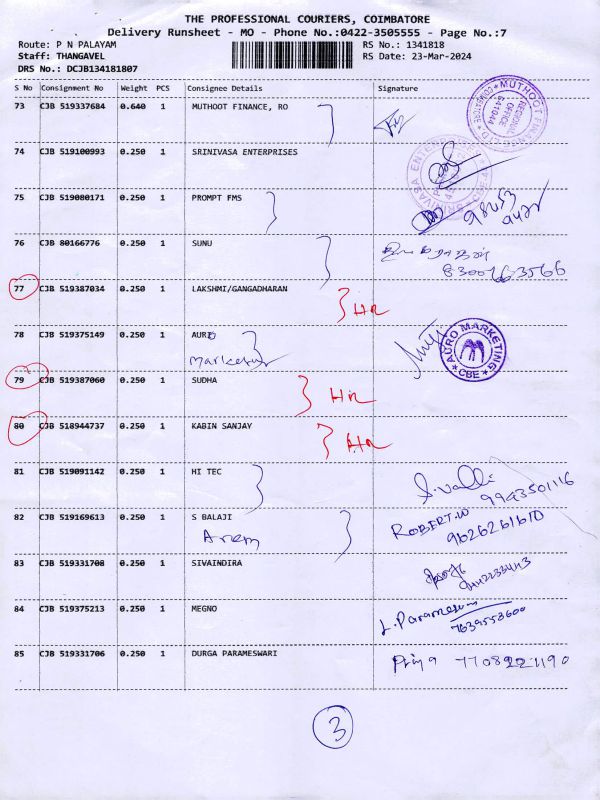 THE PROFESSIONAL COURIERS, COIMBATORE
Delivery Runsheet - MO - Phone No.:0422-3505555 - Page No.:7
Route: P N PALAYAM
RS No.: 1341818
Staff: THANGAVEL
RS Date: 23-Mar-2024
DRS No.: DCJB134181807
S No Consignment No Weight PCS Consignee Details Signature
73 CJB 519337684 0.640 1 MUTHOOT FINANCE, RO
MUTHOOT FINANCE
REGIONAL OFFICE 641044
74 CJB 519100993 0.250 1 SRINIVASA ENTERPRISES
SRINIVASA ENTERPRISES
75 CJB 519080171 0.250 1 PROMPT FMS
76 CJB 80166776 0.250 1 SUNU
8300163566
77 CJB 519387034 0.250 1 LAKSHMI/GANGADHARAN
HR
78 CJB 519375149 0.250 1 AURO
AURO MARKETING
CBE
79 CJB 519387060 0.250 1 SUDHA
HR
80 CJB 518944737 0.250 1 KABIN SANJAY
HR
81 CJB 519091142 0.250 1 HI TEC
S.valli 9943501116
82 CJB 519169613 0.250 1 S BALAJI
ROBERT.W
9626261610
83 CJB 519331708 0.250 1 SIVAINDIRA
84 CJB 519375213 0.250 1 MEGNO
7639558600
85 CJB 519331706 0.250 1 DURGA PARAMESWARI Priya 7708221190
3